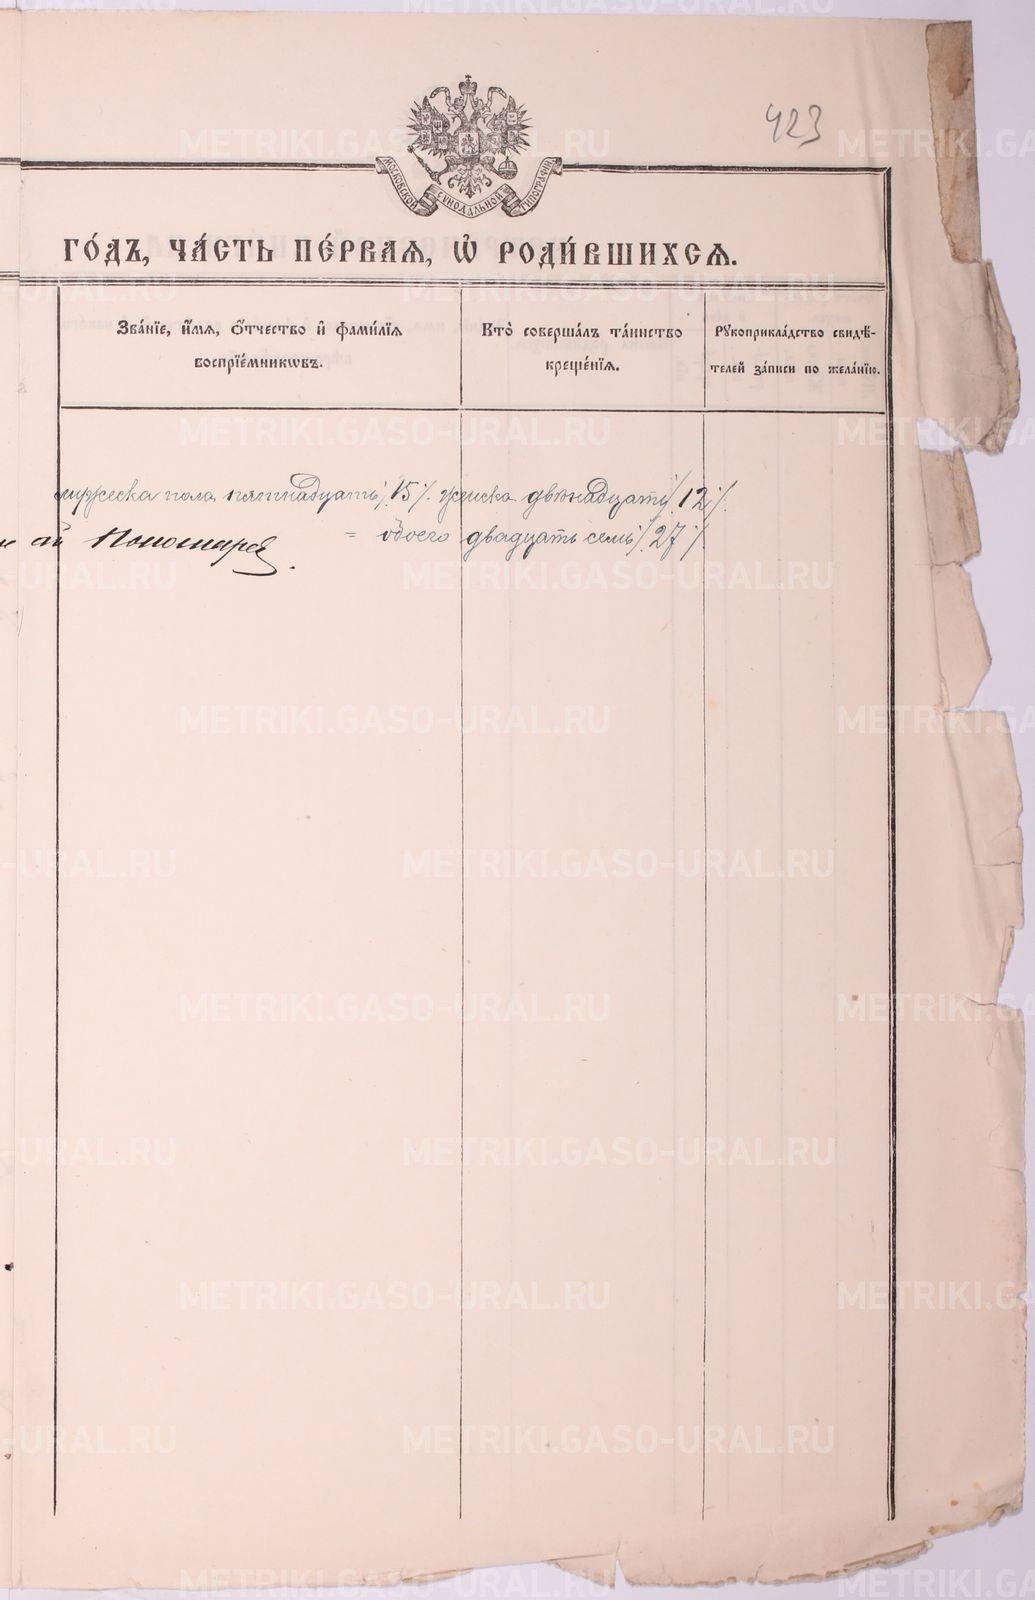 423
МОСКОВСКОЙ СѴНОДАЛЬНОЙ ТИПОГРАФІИ
ГО́ДЪ, ЧА́СТЬ ПЕ́РВАѦ, Ѽ РОДИ́ВШИХСѦ.
Зва́нїе, и҆́мѧ, ѻ҆́тчество и҆ фами́лїѧ
воспрїе́мникѡвъ.
Кто̀ соверша́лъ та́инство
креще́нїѧ.
Рꙋкоприкла́дство свидѣ́-
телей за́писи по жела́нїю.
мужеска пола пятнадцать /15/. женска двѣнадцать /12/.
Пономарев
= обоего двадцать семь /27/.
METRIKI.GASO-URAL.RU